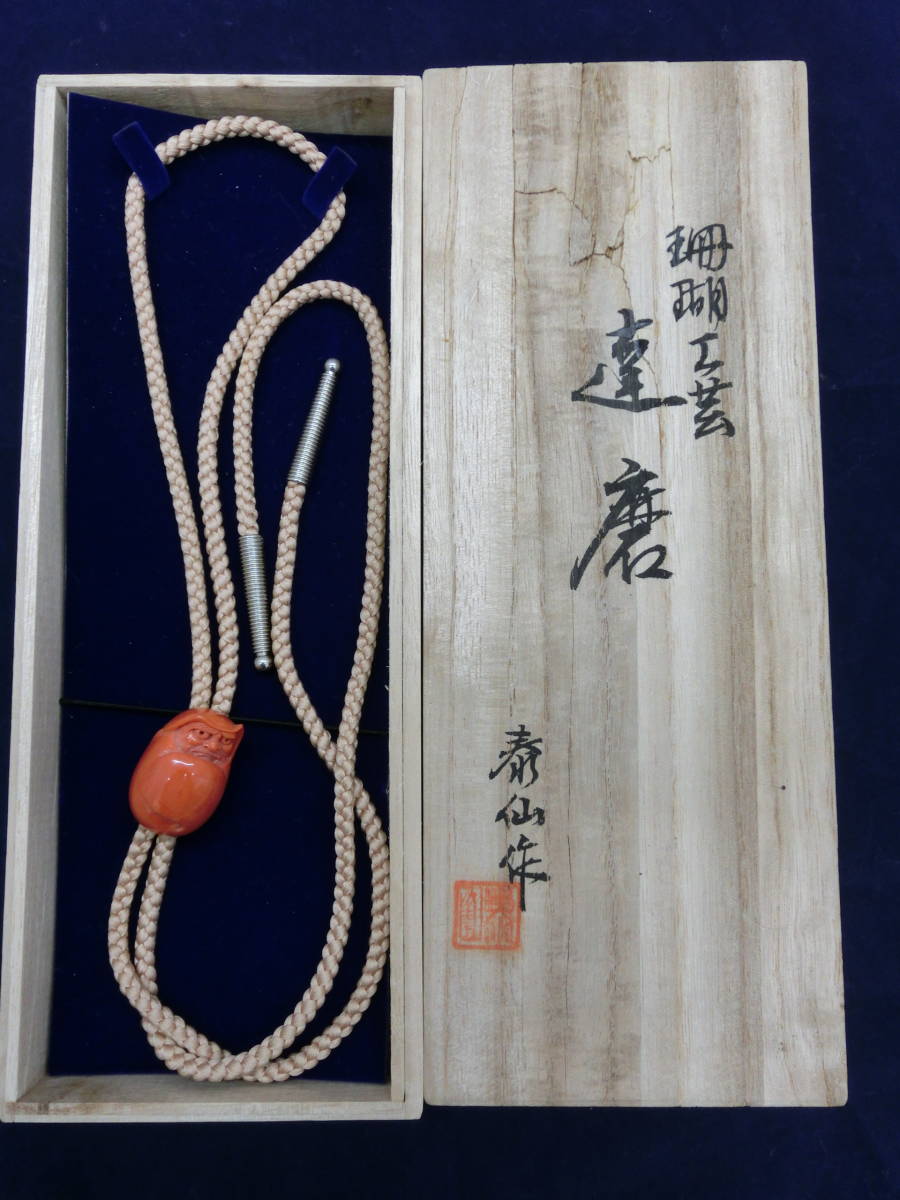 珊瑚工芸
達磨
泰仙作